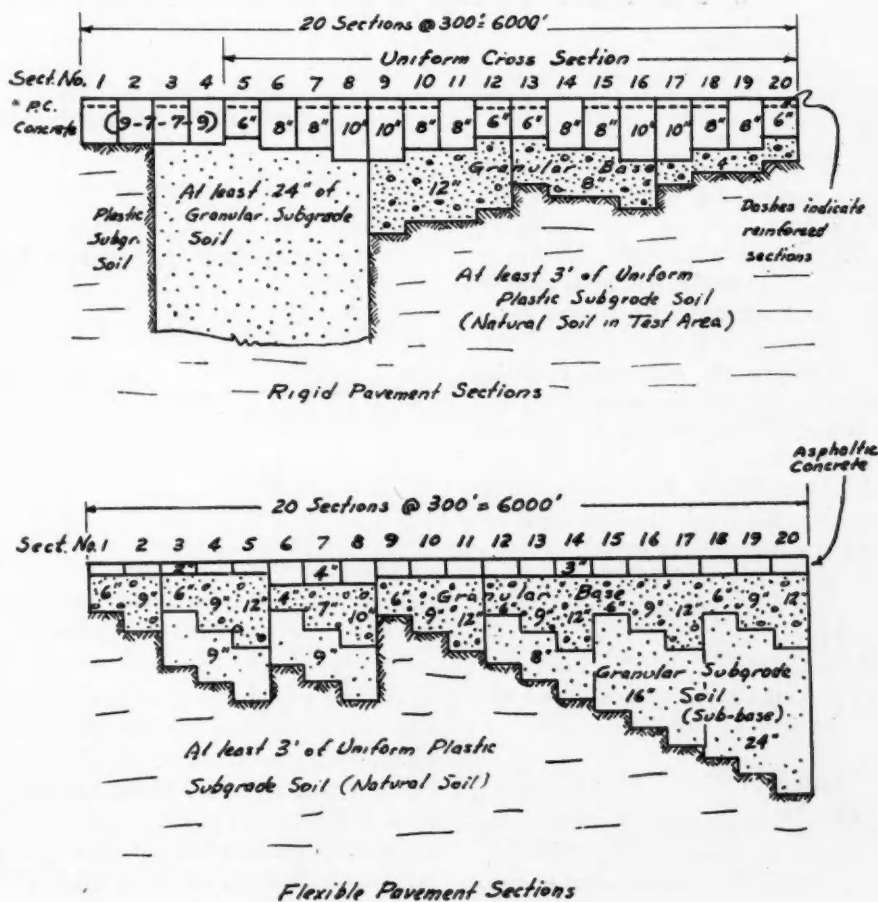 20 Sections @ 300'= 6000'
Uniform Cross Section
Sect. No. 1 2 3 4 5 6 7 8 9 10 11 12 13 14 15 16 17 18 19 20
P.C.
Concrete
(9-7-7-9) 6" 8" 8" 10" 10" 8" 8" 6" 6" 8" 8" 10" 10" 8" 8" 6"
Granular Base
12" 8" 4"
At least 24" of
Granular Subgrade
Soil
Plastic
Subgr.
Soil
Dashes indicate
reinforced
sections
At least 3' of Uniform
Plastic Subgrade Soil
(Natural Soil in Test Area)
Rigid Pavement Sections
Asphaltic
Concrete
20 Sections @ 300'= 6000'
Sect. No. 1 2 3 4 5 6 7 8 9 10 11 12 13 14 15 16 17 18 19 20
2" 4" 3"
Granular Base
6" 9" 6" 9" 12" 4" 7" 10" 6" 9" 12" 6" 9" 12" 6" 9" 12" 6" 9" 12"
9" 9" 8"
Granular Subgrade
16" Soil
(Sub-base)
24"
At least 3' of Uniform Plastic
Subgrade Soil (Natural Soil)
Flexible Pavement Sections